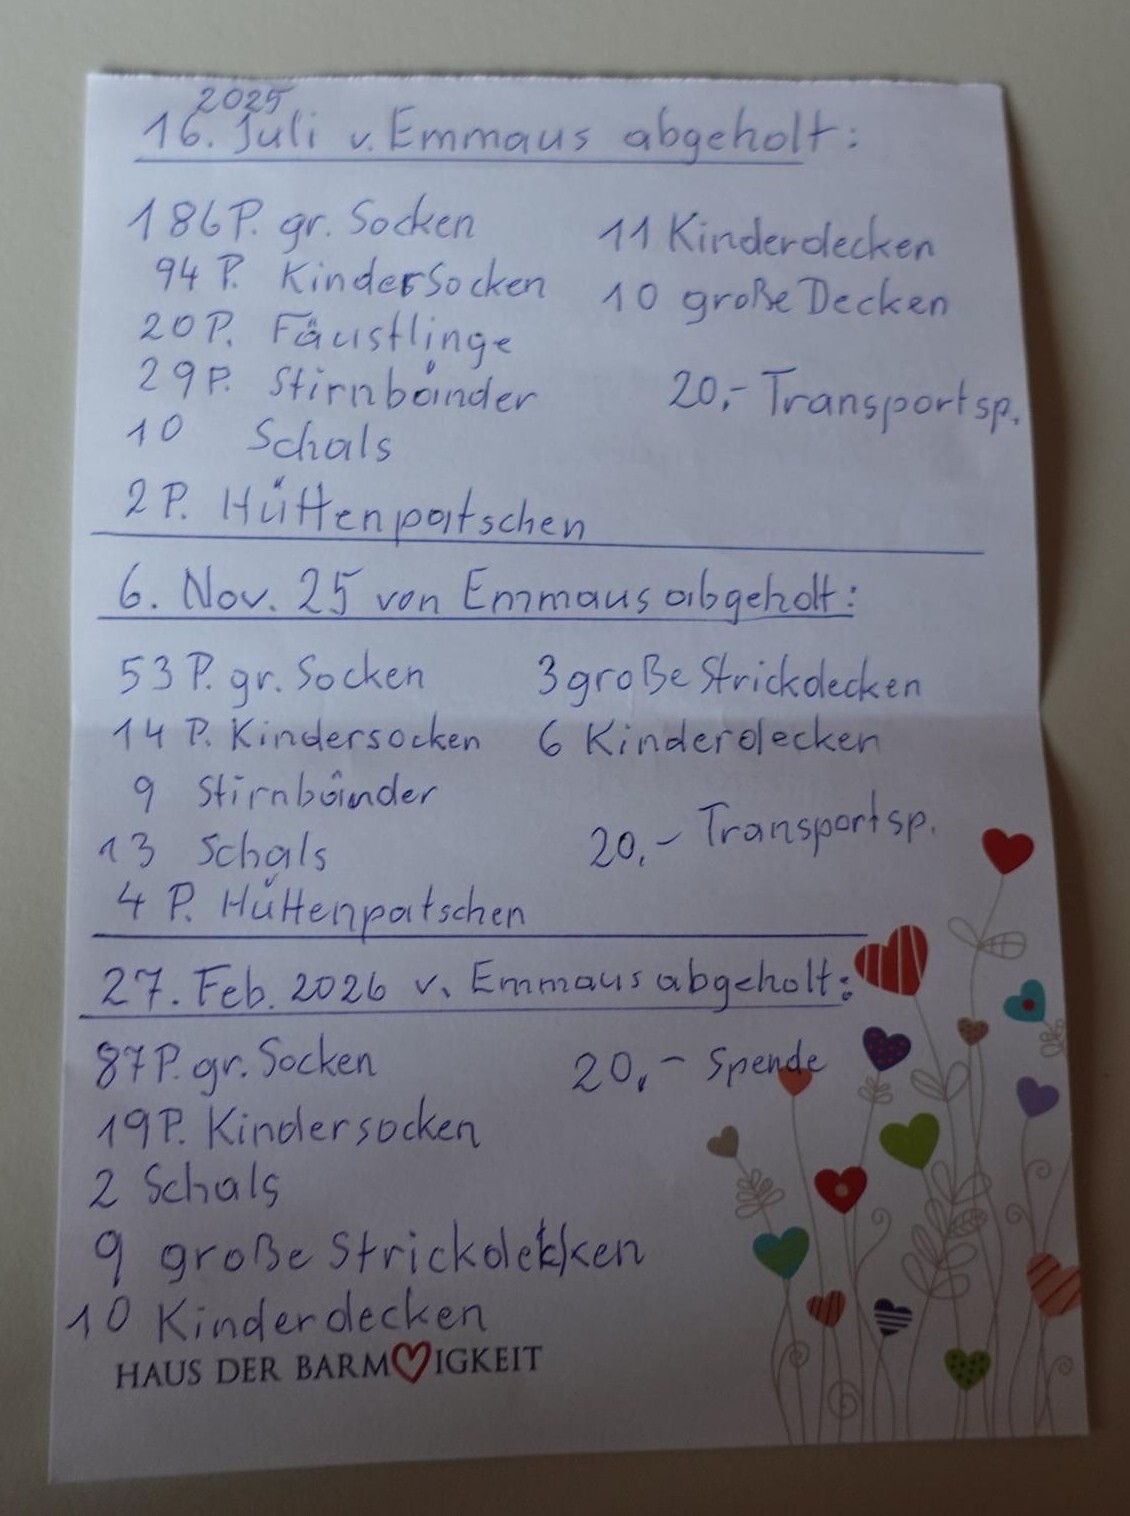 2025
16. Juli v. Emmaus abgeholt:
186 P. gr. Socken
94 P. Kindersocken
20 P. Fäustlinge
29 P. Stirnbänder
10 Schals
2 P. Hüttenpatschen
11 Kinderdecken
10 große Decken
20,- Transportsp.
6. Nov. 25 von Emmaus abgeholt:
53 P. gr. Socken
14 P. Kindersocken
9 Stirnbänder
13 Schals
4 P. Hüttenpatschen
3 große Strickdecken
6 Kinderdecken
20,- Transportsp.
27. Feb. 2026 v. Emmaus abgeholt:
87 P. gr. Socken
19 P. Kindersocken
2 Schals
9 große Strickdecken
10 Kinderdecken
20,- Spende
HAUS DER BARM♥IGKEIT